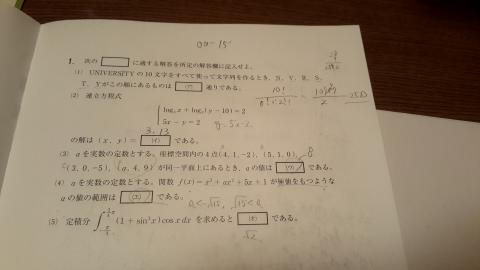 00-15
1. 次の□に適する解答を所定の解答欄に記入せよ。
(1) UNIVERSITYの10文字をすべて使って文字列を作るとき, N, V, R, S,
T, Yがこの順にあるものは (ア) 通りである。
(2) 連立方程式
log₅x+log₅(y-10)=2
5x-y=2
y=5x-2
3, 13
の解は (x, y) = (イ) である。
(3) aを実数の定数とする。座標空間内の4点(4, 1, -2), (5, 1, 0),
(3, 0, -5), (a, 4, 9) が同一平面上にあるとき, aの値は (ウ) である。
(4) aを実数の定数とする。関数 f(x)=x³+ax²+5x+1 が極値をもつような
aの値の範囲は (エ) である。 a<-√15, √15<a
(5) 定積分 ∫ (1+sin²x)cos x dx を求めると (オ) である。
√2